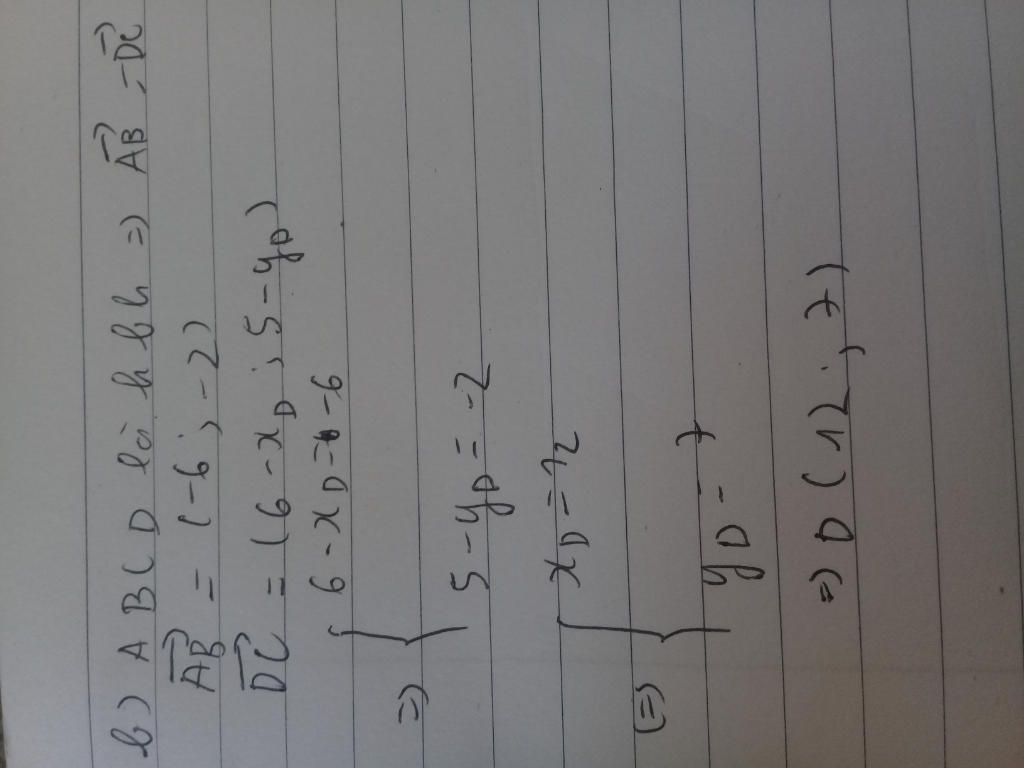 b) ABCD là hbh => AB→ = DC→
AB→ = (-6; -2)
DC→ = (6-x_D; 5-y_D)
=> { 6-x_D = -6
5-y_D = -2
(=) { x_D = 12
y_D = 7
=> D (12; 7)